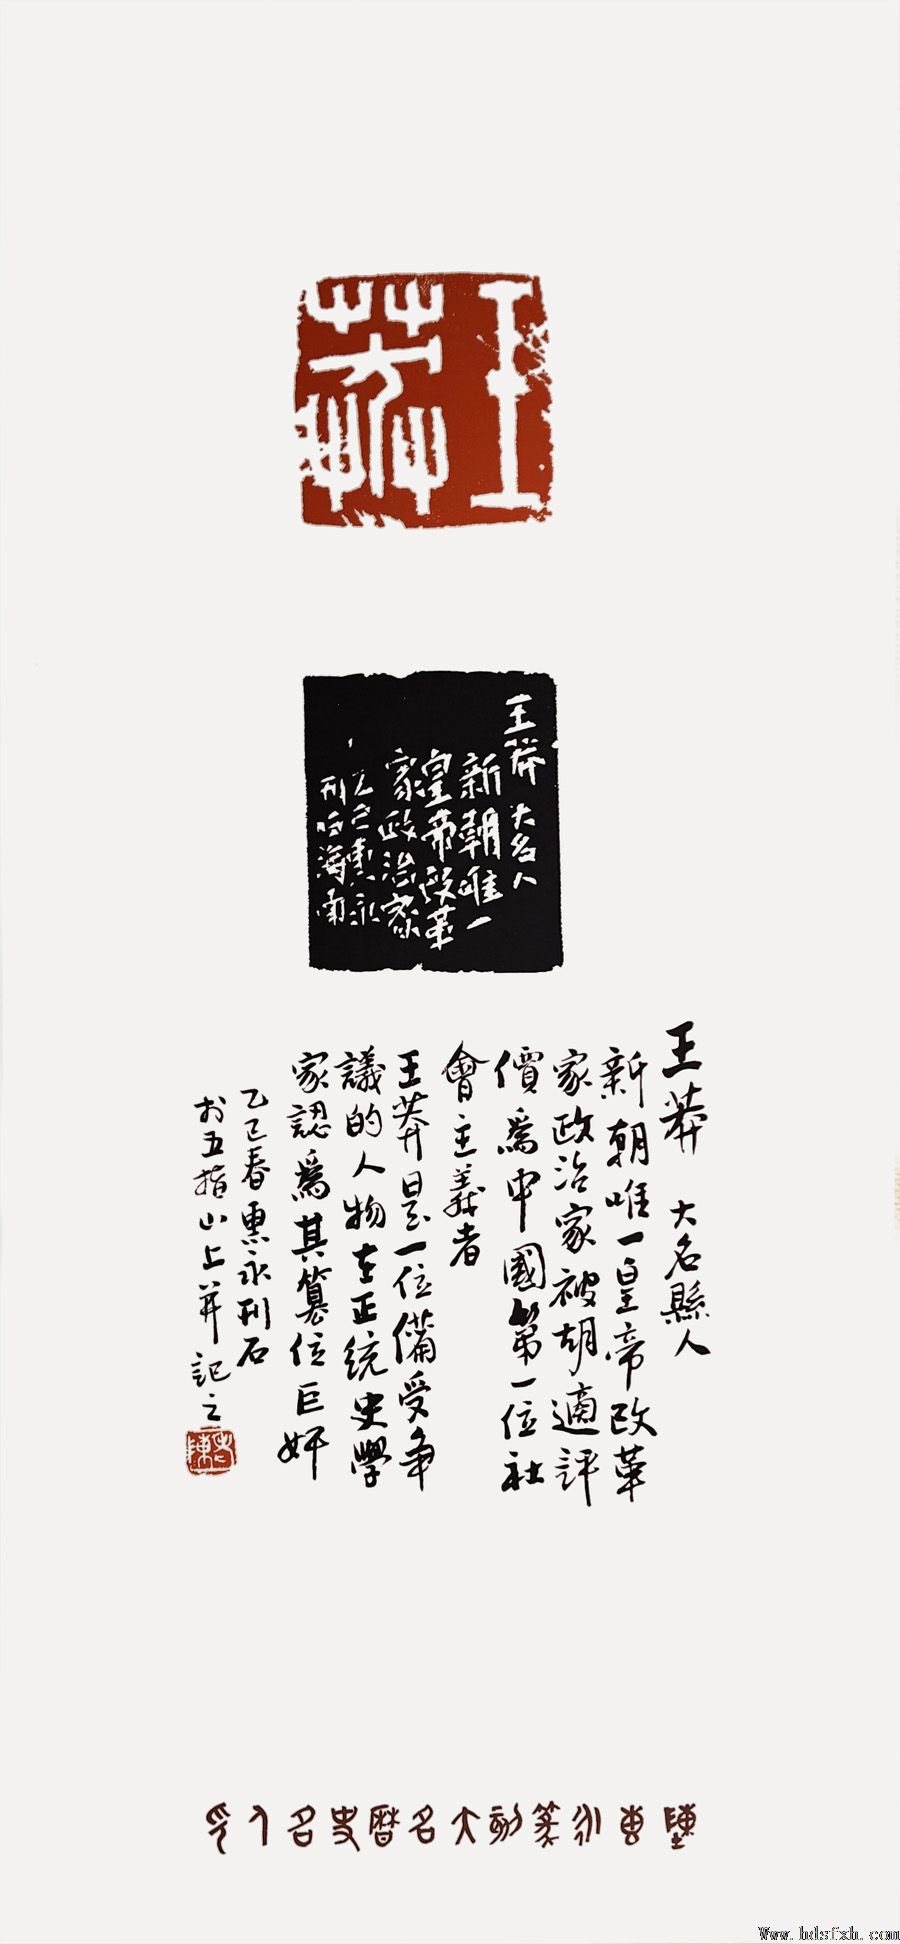 王莽
王莽 大名人
新朝唯一
皇帝改革
家政治家
乙巳惠永
刊於海南
王莽 大名縣人
新朝唯一皇帝改革
家政治家被胡適評
價爲中國第一位社
會主義者
王莽是一位備受争
議的人物在正統史學
家認爲其篡位巨奸
乙巳春惠永刊石
於五指山上并記之
陳惠永篆刻大名歷史名人印
www.hdsfxh.com